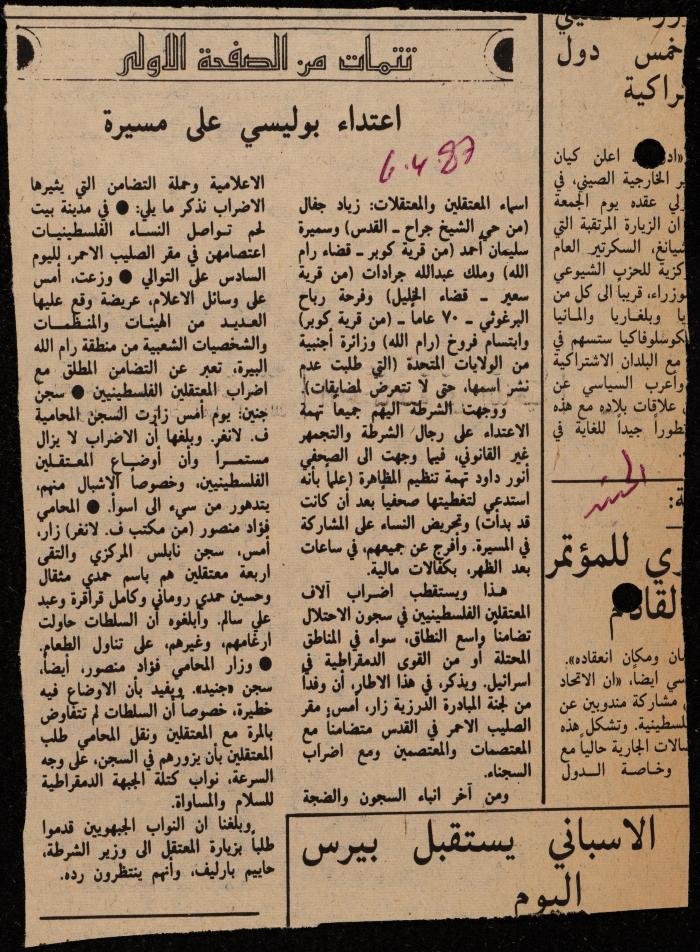 تتمات من الصفحة الاولى
اعتداء بوليسي على مسيرة
6.4.87
اسماء المعتقلين والمعتقلات: زياد جفال
(من حي الشيخ جراح ـ القدس) وسميرة
سليمان أحمد (من قرية كوبر ـ قضاء رام
الله) وملك عبدالله جرادات (من قرية
سعير ـ قضاء الخليل) وفرحة رباح
البرغوثي ـ ٧٠ عاماً ـ (من قرية كوبر)
وابتسام فروخ (رام الله) وزائرة أجنبية
من الولايات المتحدة (التي طلبت عدم
نشر اسمها، حتى لا تتعرض لمضايقات)
ووجهت الشرطة اليهم جميعاً تهمة
الاعتداء على رجال الشرطة والتجمهر
غير القانوني، فيما وجهت الى الصحفي
أنور داود تهمة تنظيم المظاهرة (علماً بأنه
استدعي لتغطيتها صحفياً بعد أن كانت
قد بدأت) وتحريض النساء على المشاركة
في المسيرة. وأفرج عن جميعهم، في ساعات
بعد الظهر، بكفالات مالية.
هذا ويستقطب اضراب آلاف
المعتقلين الفلسطينيين في سجون الاحتلال
تضامنا واسع النطاق، سواء في المناطق
المحتلة أو من القوى الدمقراطية في
اسرائيل. ويذكر، في هذا الاطار، أن وفداً
من لجنة المبادرة الدرزية زار، أمس، مقر
الصليب الاحمر في القدس متضامناً مع
المعتصمات والمعتصمين ومع اضراب
السجناء.
ومن آخر انباء السجون والضجة
الاعلامية وحملة التضامن التي يثيرها
الاضراب نذكر ما يلي: ● في مدينة بيت
لحم تواصل النساء الفلسطينيات
اعتصامهن في مقر الصليب الاحمر، لليوم
السادس على التوالي ● وزعت، أمس
على وسائل الاعلام، عريضة وقع عليها
العديد من الهيئات والمنظمات
والشخصيات الشعبية من منطقة رام الله
البيرة، تعبر عن التضامن المطلق مع
اضراب المعتقلين الفلسطينيين ● سجن
جنين: يوم أمس زارت السجن المحامية
ف. لانغر. وبلغها أن الاضراب لا يزال
مستمراً وأن أوضاع المعتقلين
الفلسطينيين، وخصوصا الاشبال منهم،
يتدهور من سيء الى اسوأ. ● المحامي
فؤاد منصور (من مكتب ف. لانغر) زار،
أمس، سجن نابلس المركزي والتقى
اربعة معتقلين هم باسم حمدي مثقال
وحسين حمدي روماني وكامل قراقرة وعبد
علي سالم. وأبلغوه أن السلطات حاولت
ارغامهم، وغيرهم، على تناول الطعام.
● وزار المحامي فؤاد منصور، أيضاً،
سجن «جنيد». ويفيد بأن الاوضاع فيه
خطيرة، خصوصاً أن السلطات لم تتفاوض
بالمرة مع المعتقلين ونقل المحامي طلب
المعتقلين بأن يزورهم في السجن، على وجه
السرعة، نواب كتلة الجبهة الدمقراطية
للسلام والمساواة.
وبلغنا ان النواب الجبهويين قدموا
طلباً بزيارة المعتقل الى وزير الشرطة،
حاييم بارليف، وأنهم ينتظرون رده.
خمس دول
اعلن كيان
الخارجية الصيني، في
عقده يوم الجمعة
ان الزيارة المرتقبة التي
السكرتير العام
للحزب الشيوعي
قريبا الى كل من
وبلغاريا والمانيا
ستسهم في
مع البلدان الاشتراكية
وأعرب السياسي عن
علاقات بلاده مع هذه
جيداً للغاية في
للمؤتمر
القادم
ومكان انعقاده».
ايضاً، «ان الاتحاد
مشاركة مندوبين عن
وتشكل هذه
الجارية حالياً مع
وخاصة الدول
الاسباني يستقبل بيرس
اليوم